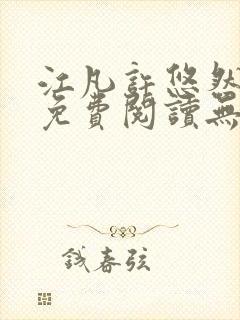 江凡許悠然
免費閱讀無
錢春弦